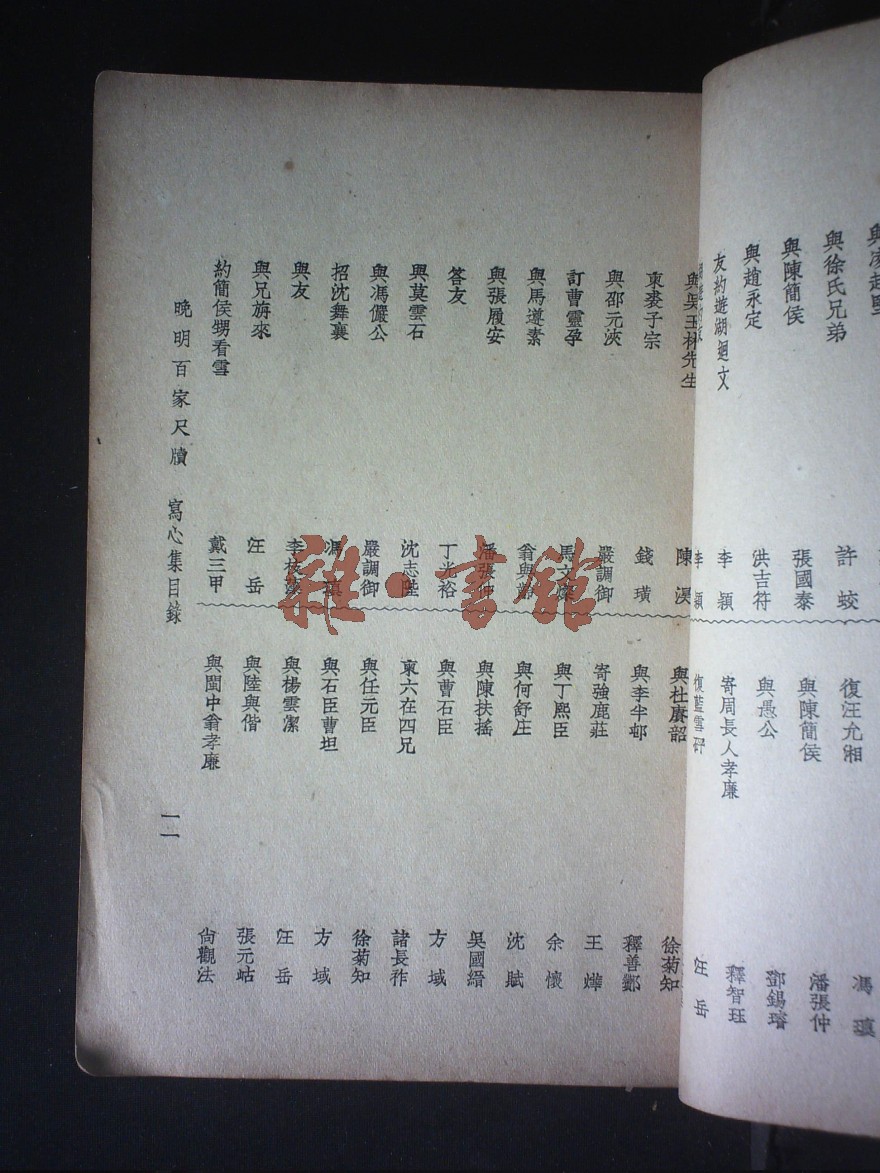 與徐氏兄弟 許蛟
與陳簡侯 張國泰
與趙永定 洪吉符
友約遊湖廻文 李穎
李穎
馮瑱
復汪允湘 潘張仲
與陳簡侯 鄧錫璿
與愚公 釋智珏
寄周長人孝廉 汪岳
復藍雪
與吳玉林先生 陳淏
柬裘子宗 錢璜
與邵元浹 嚴調御
訂曹靈孕 馬文燦
與馬遵素 翁與齡
與張履安 潘張仲
答友 丁光裕
與莫雲石 沈志陛
與馮儼公 嚴調御
招沈舞襄 馮瑱
與友 李枝
與兄旃來 汪岳
約簡侯甥看雪 戴三甲
與杜賡韶 徐菊知
與李半邨 釋善
寄強鹿莊 王燁
與丁熙臣 余懷
與何舒庄 沈賦
與陳扶搖 吳國縉
與曹石臣 方域
柬六在四兄 諸長祚
與任元臣 徐菊知
與石臣曹坦 方域
與楊雲潔 汪岳
與陸與偕 張元岵
與閩中翁孝廉 尙觀法
晚明百家尺牘 寫心集目錄 一一
雜·書館